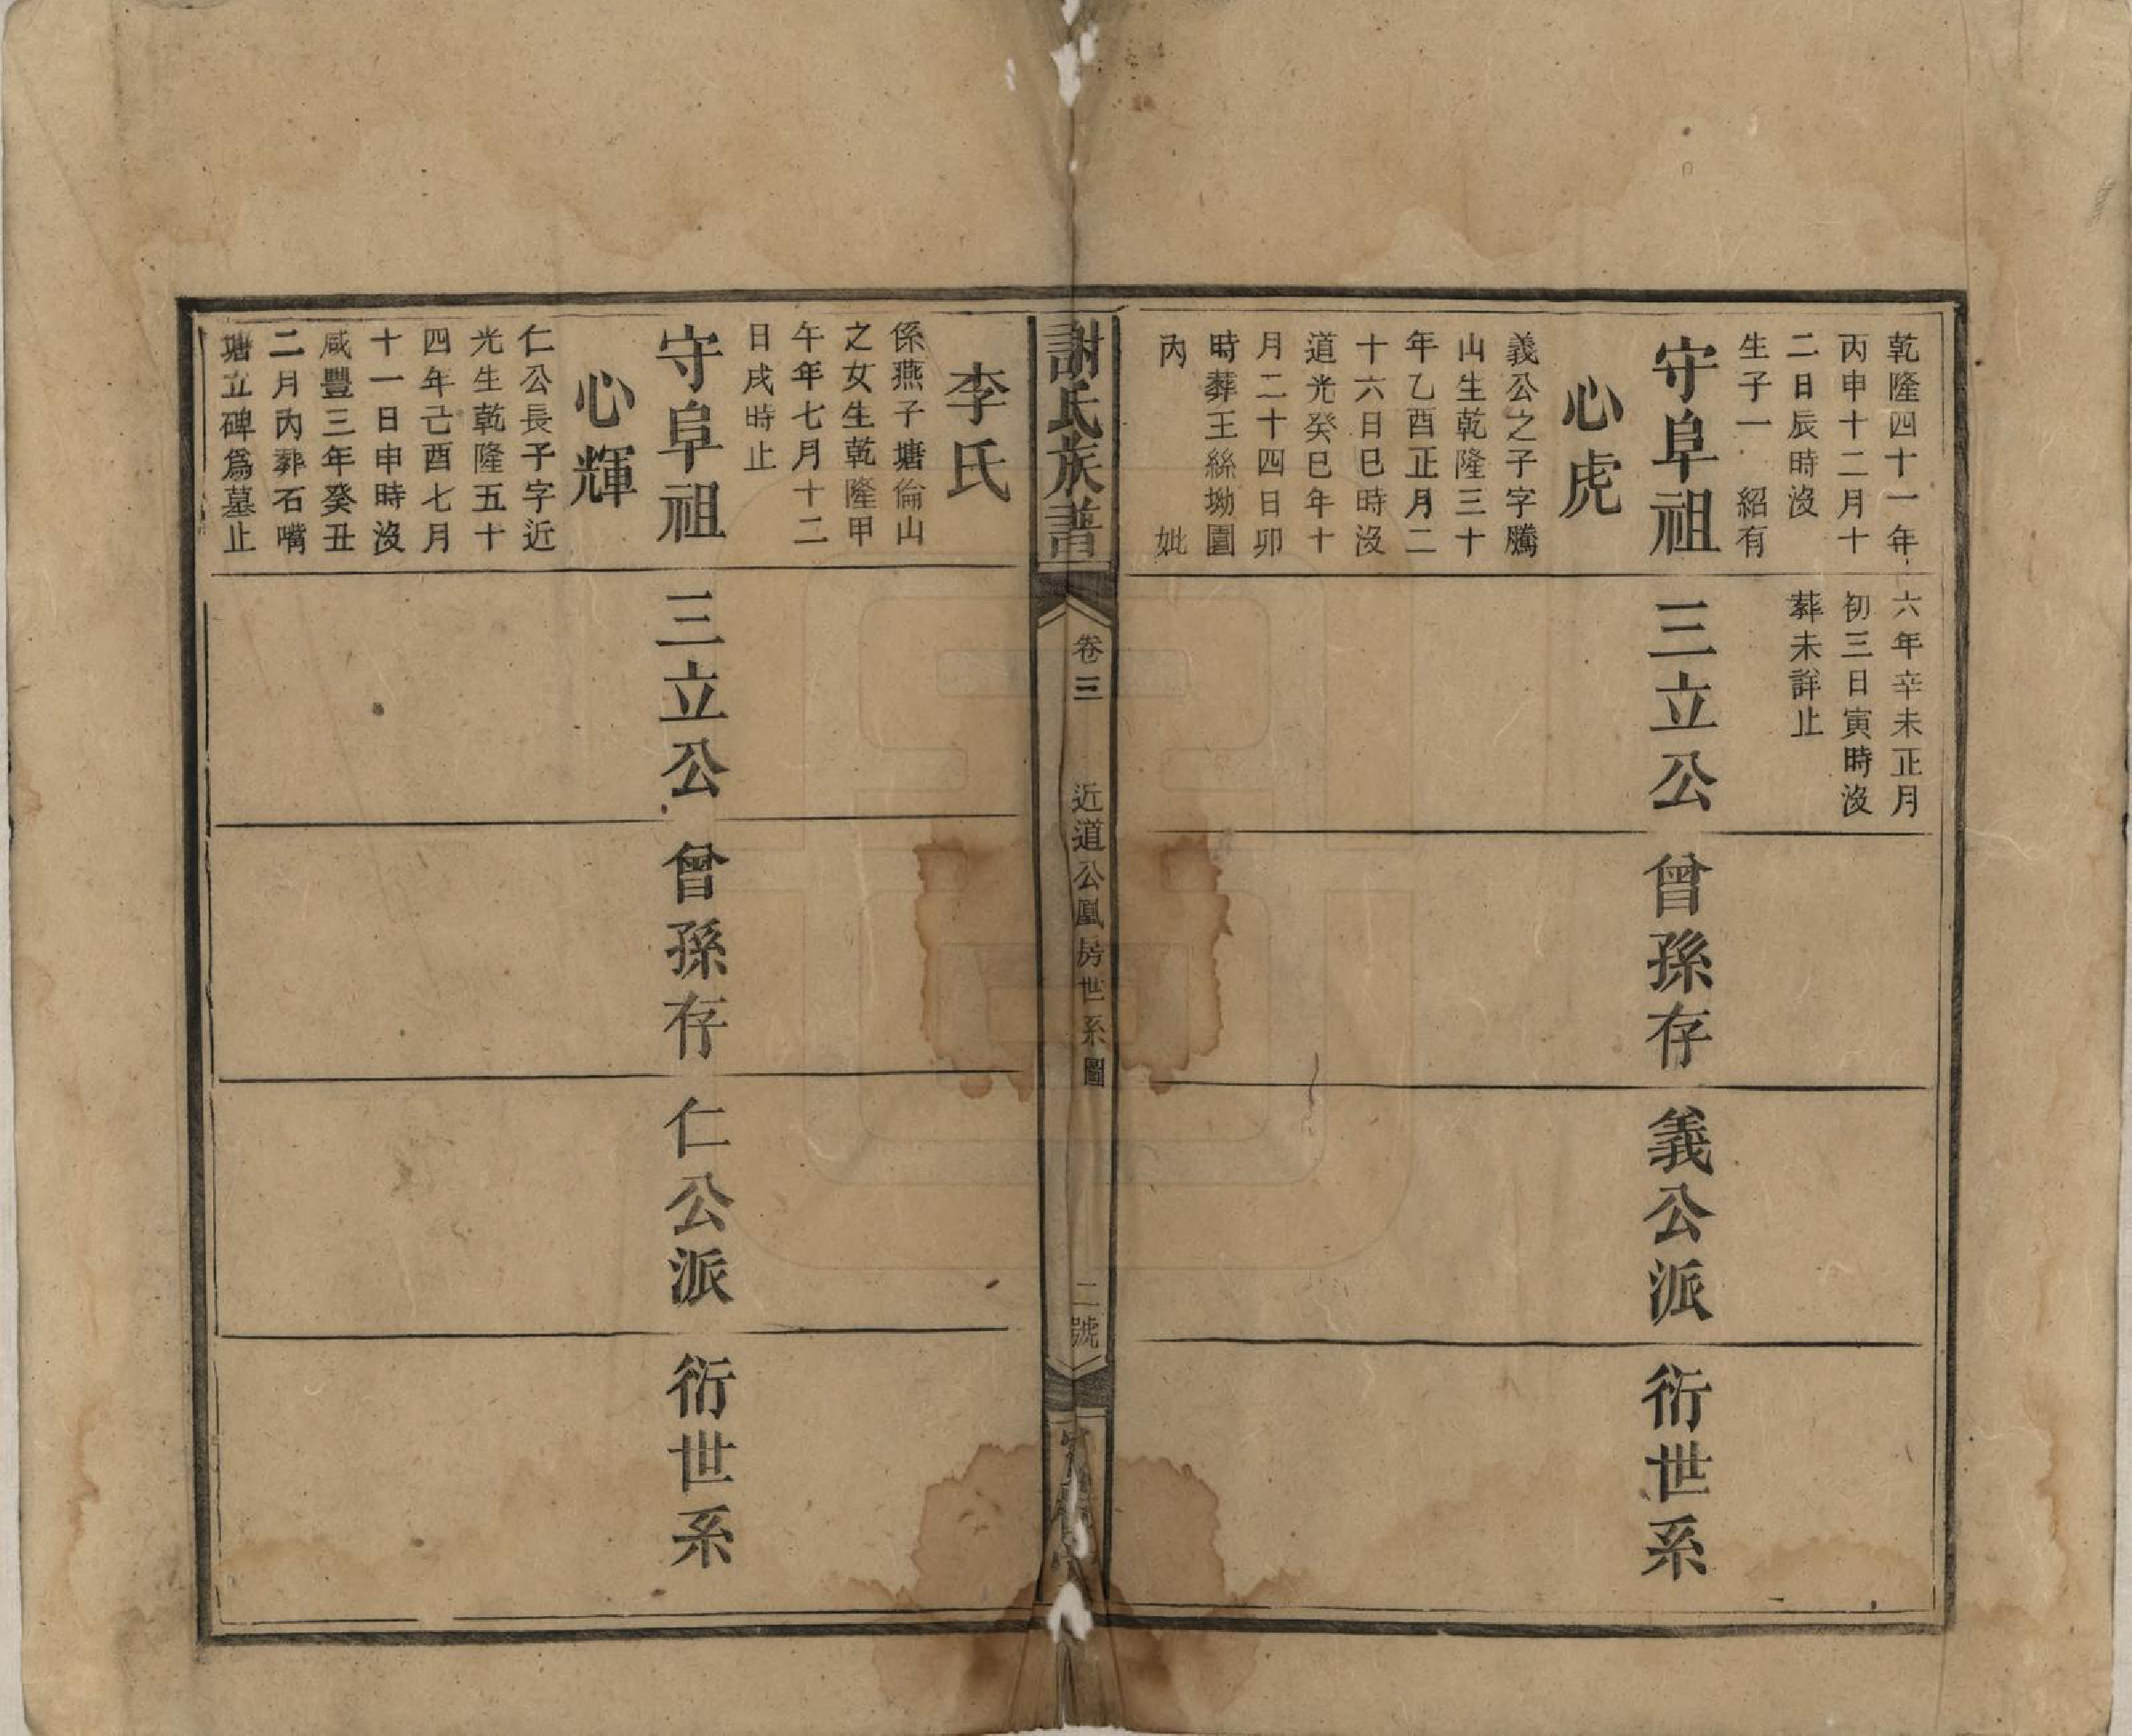 乾隆四十一年
丙申十二月十
二日辰時沒
生子一 紹有
六年辛未正月
初三日寅時沒
葬未詳止
守阜祖
三立公
曾孫存
義公派
衍世系
心虎
義公之子字騰
山生乾隆三十
年乙酉正月二
十六日巳時沒
道光癸巳年十
月二十四日卯
時葬王絲坳園
內 妣
謝氏族譜
卷三
近道公凰房世系圖
二號
李氏
係燕子塘倫山
之女生乾隆甲
午年七月十二
日戌時止
守阜祖
三立公
曾孫存
仁公派
衍世系
心輝
仁公長子字近
光生乾隆五十
四年己酉七月
十一日申時沒
咸豐三年癸丑
二月內葬石嘴
塘立碑為墓止